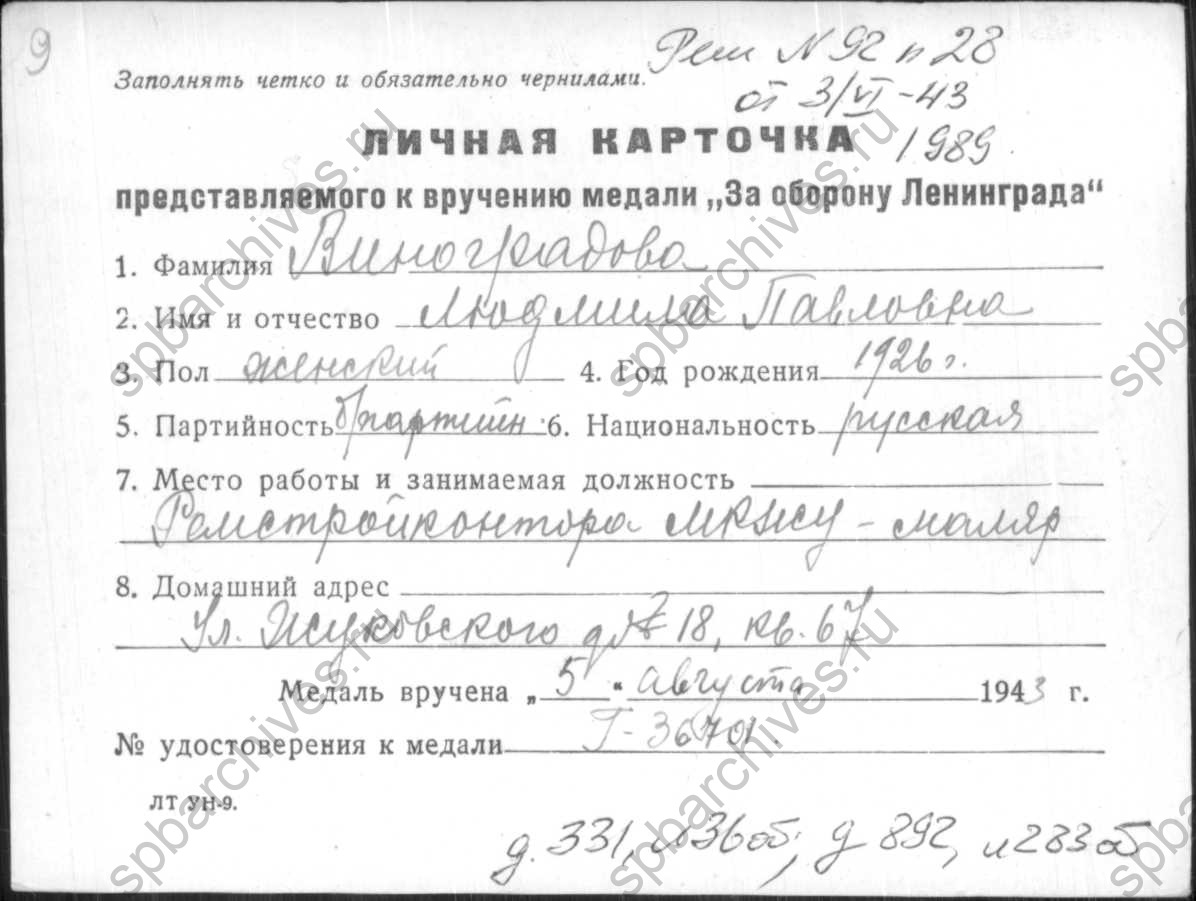 9
Реш N 92 п 28
Заполнять четко и обязательно чернилами.
от 3/VI-43
ЛИЧНАЯ КАРТОЧКА
1989
представляемого к вручению медали „За оборону Ленинграда“
1. Фамилия Виноградова
2. Имя и отчество Людмила Павловна
3. Пол женский 4. Год рождения 1926 г.
5. Партийность б/партийн 6. Национальность русская
7. Место работы и занимаемая должность
Ремстройконтора МКЖУ - маляр
8. Домашний адрес
Ул. Жуковского д № 18, кв. 67
Медаль вручена „5“ августа 1943 г.
№ удостоверения к медали Г-36701.
ЛТ УН-9.
д. 331, л 36 об; д 892, л 283 об
spbarchives.ru
spbarchives.ru
spbarchives.ru
spbarchives.ru